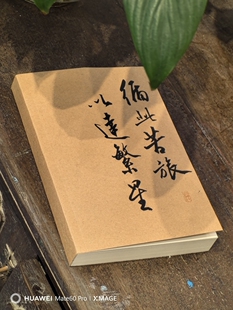 循此苦旅
以達繁星
HUAWEI Mate60 Pro | XMAGE